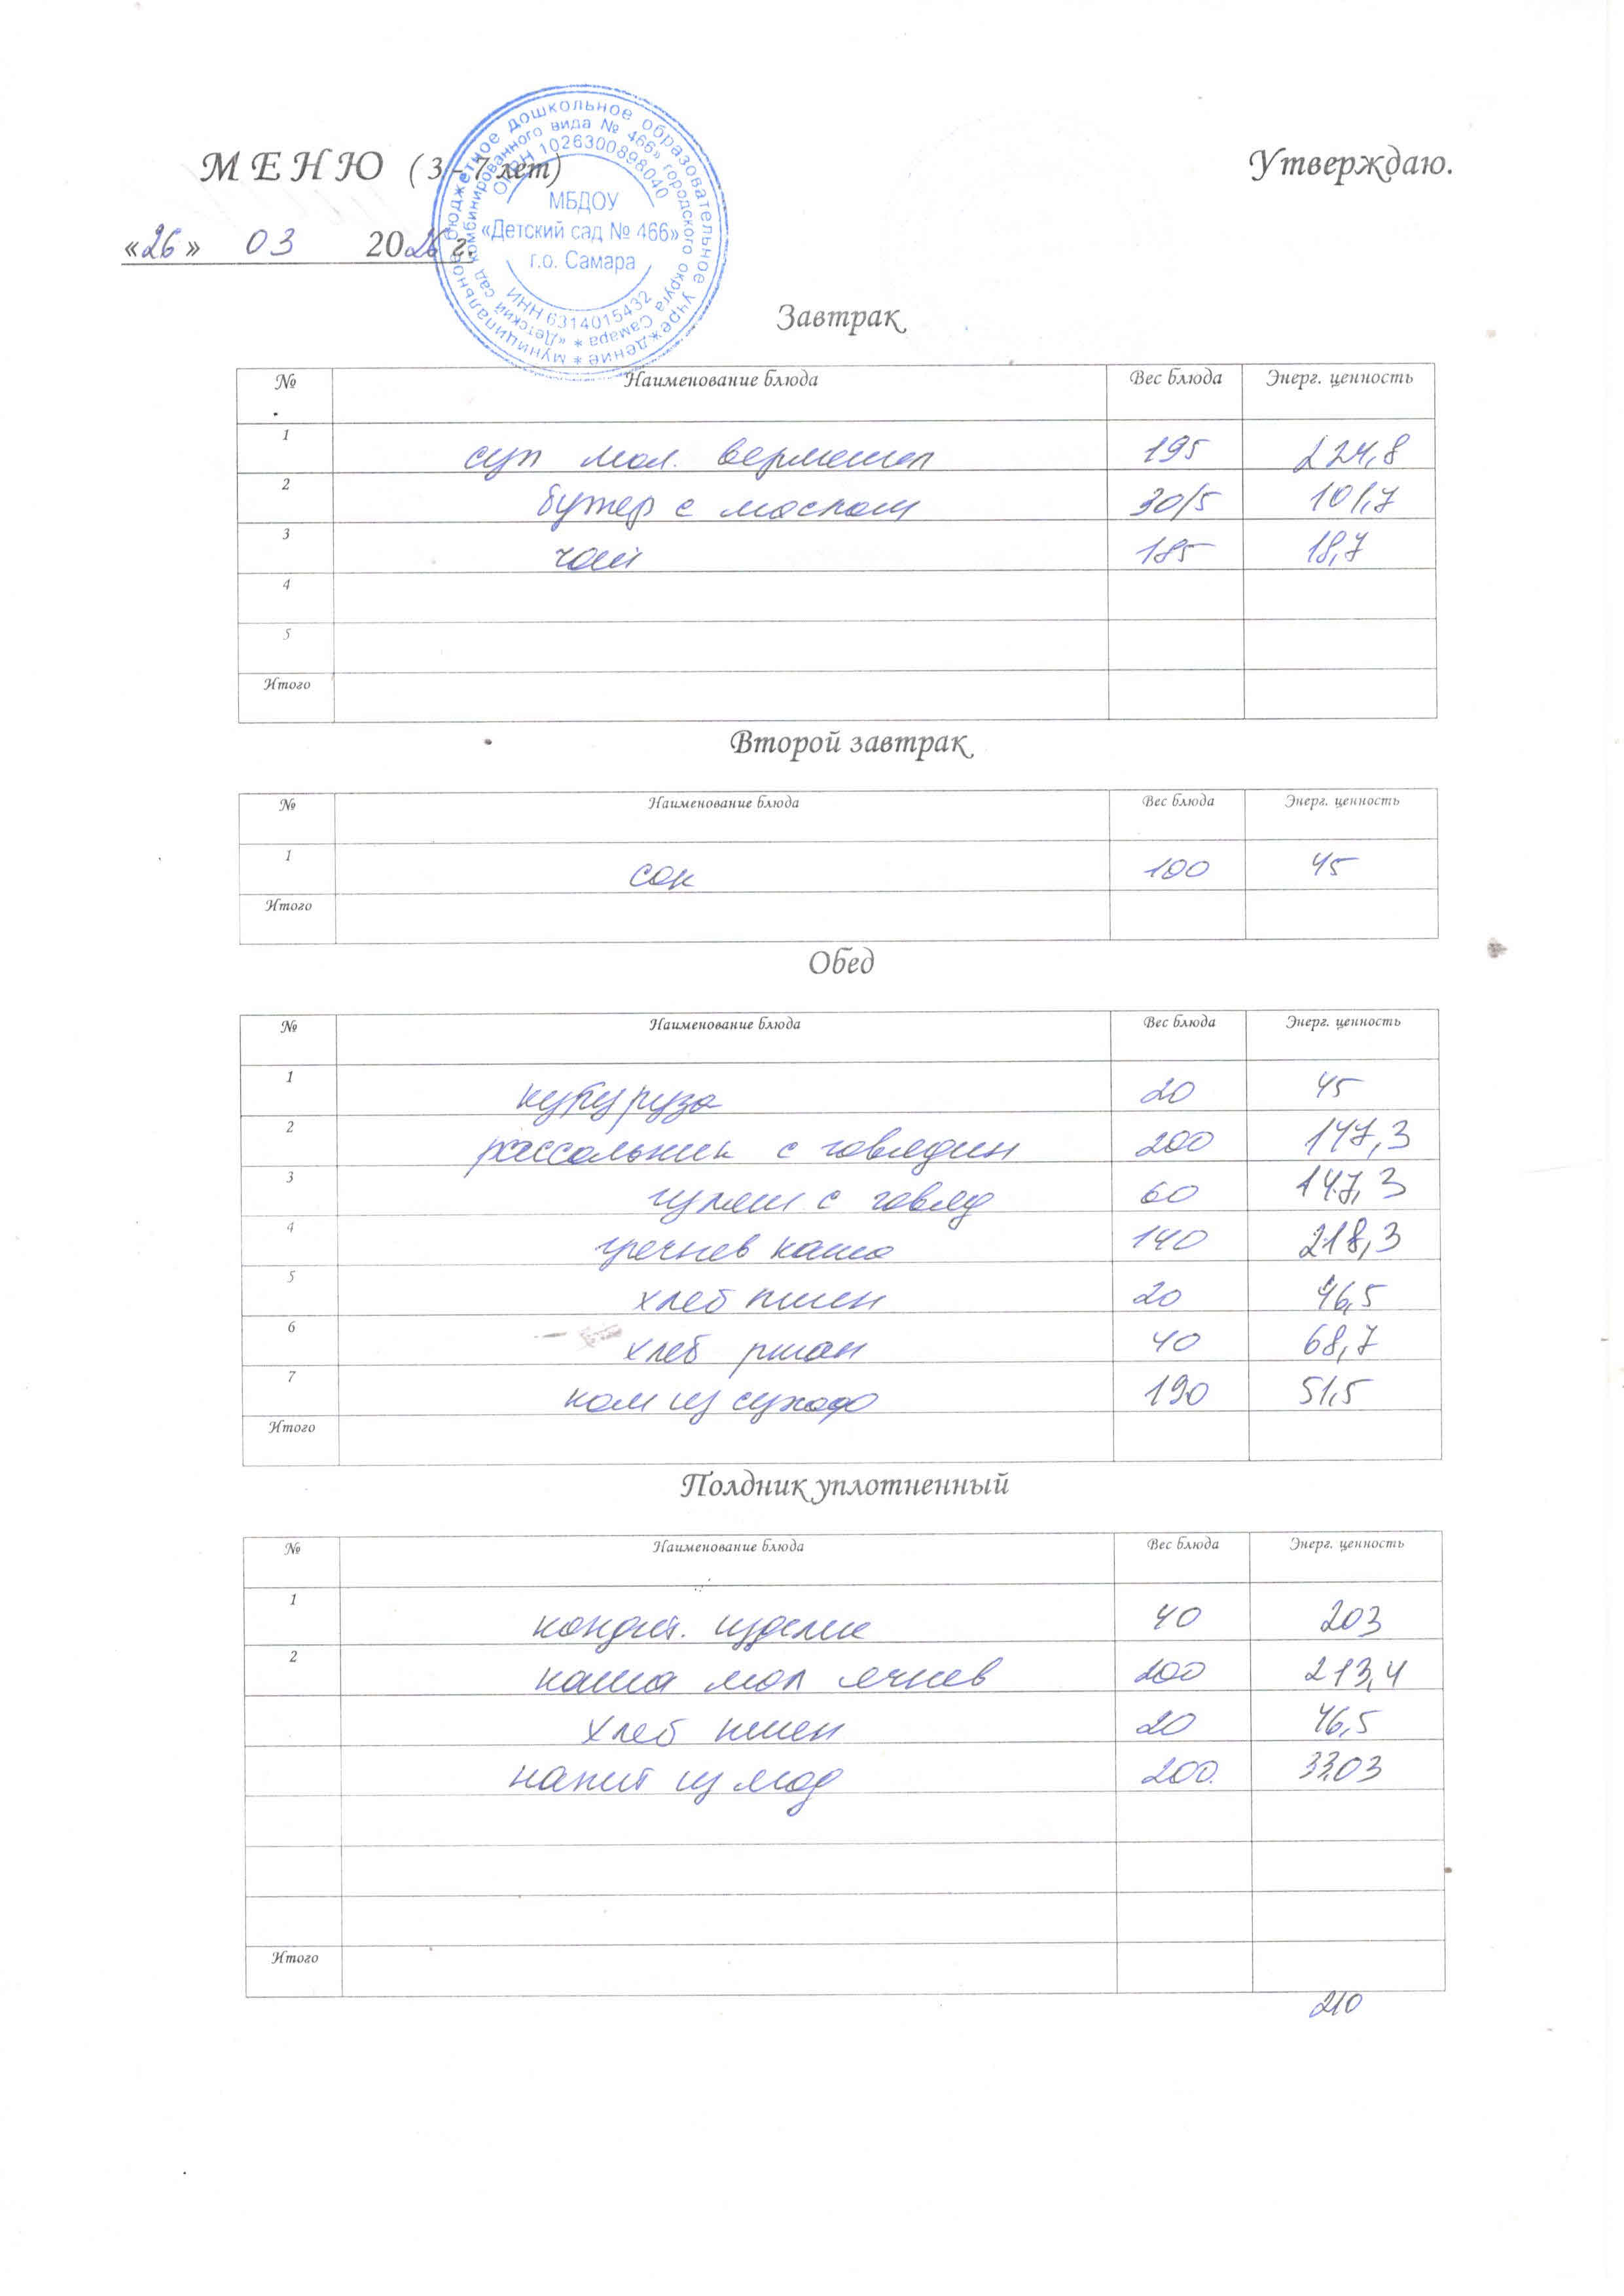 МЕНЮ (3 - 7 лет)
Утверждаю.
«26» 03 2026 г.
муниципальное бюджетное дошкольное образовательное учреждение
«Детский сад комбинированного вида № 466» городского округа Самара
ОГРН 1026300898040
МБДОУ
«Детский сад № 466»
г.о. Самара
ИНН 6314015432
Завтрак
№ Наименование блюда Вес блюда Энерг. ценность
1 суп мол. вермишел 195 224,8
2 бутер с маслом 30/5 101,7
3 чай 185 18,7
4
5
Итого
Второй завтрак
№ Наименование блюда Вес блюда Энерг. ценность
1 сок 100 45
Итого
Обед
№ Наименование блюда Вес блюда Энерг. ценность
1 кукуруза 20 45
2 рассольник с говядин 200 147,3
3 гуляш с говяд 60 147,3
4 гречнев каша 140 218,3
5 хлеб пшен 20 46,5
6 хлеб ржан 40 68,7
7 ком из сухоф 190 51,5
Итого
Полдник уплотненный
№ Наименование блюда Вес блюда Энерг. ценность
1 кондит. изделие 40 203
2 каша мол ячнев 200 213,4
хлеб пшен 20 46,5
напит из 200
Итого
210